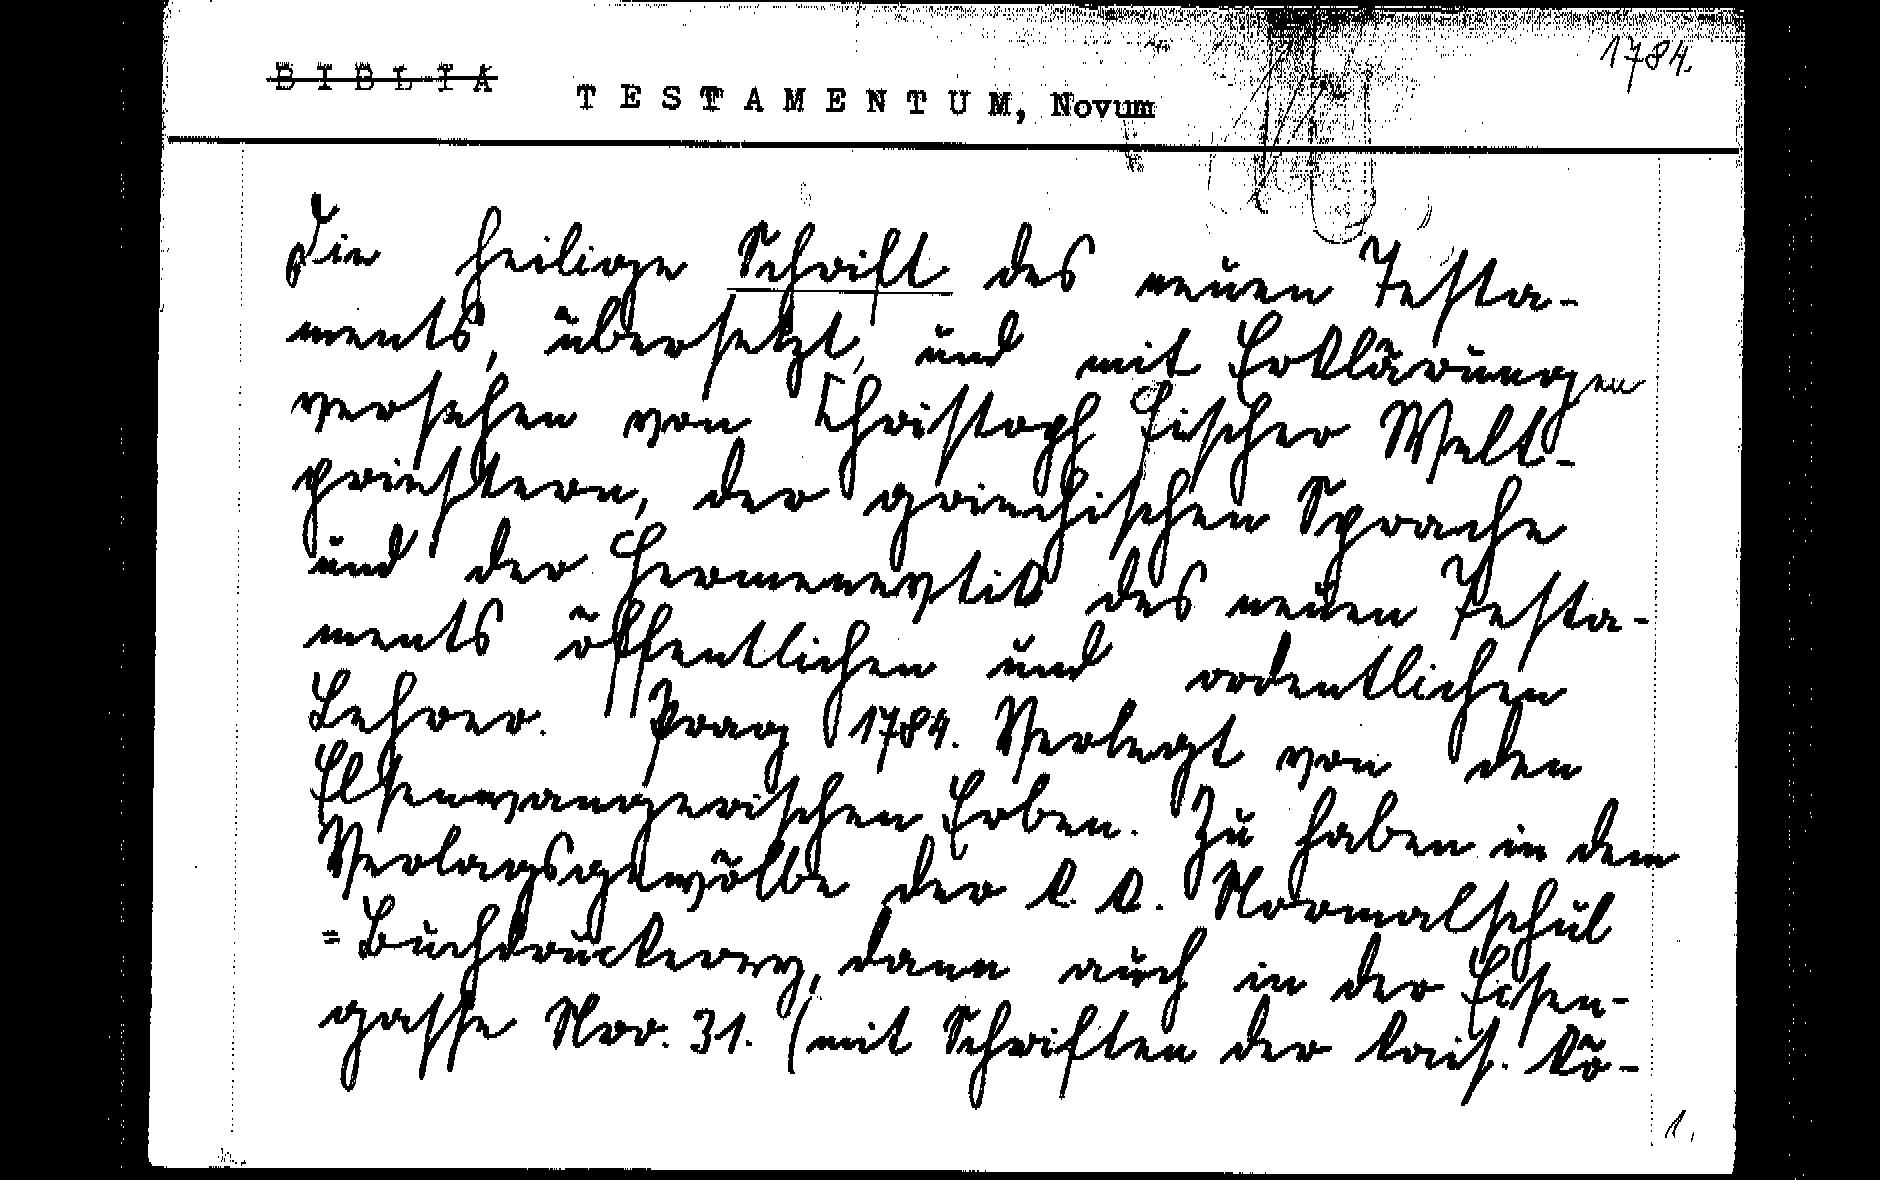 1784.
BIBLIA
TESTAMENTUM, Novum
Die heilige Schrift des neuen Testa-
ments, übersetzt, und mit Erklärungen
versehen von Christoph Fischer Welt-
priestern, der griechischen Sprache
und der Hermenevtik des neuen Testa-
ments öffentlichen und ordentlichen
Lehrer. Prag 1784. Verlegt von den
Elsenwangerischen Erben. Zu haben in dem
Verlagsgewölbe der k. k. Normalschul
=Buchdruckerey, dann auch in der Eisen-
gasse Nro. 31. (mit Schriften der kais. kö-
1.